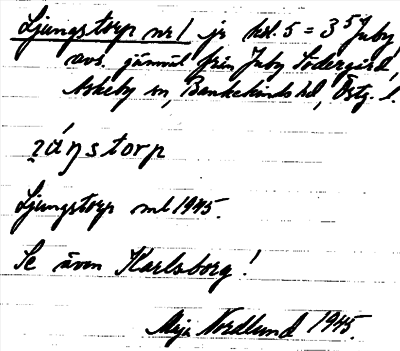 Ljungstorp nr 1 jr kd. 5 = 3⁵ Juby,
avs. jämnl från Juby Södergård,
Askeby sn, Bankekinds hd, Östg. l.
ɿáŋstorp
Ljungstorp ml 1945.
Se även Karlsborg!
Maja Nordlund 1945.